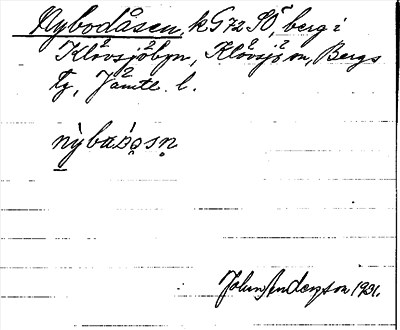 Nybodåsen, k G 72 SÖ, berg i
Klövsjöbyn, Klövsjö sn, Bergs
tg, Jämtl. l.
nỳbaɷ́o̥sn̥
John Anderzson 1931.